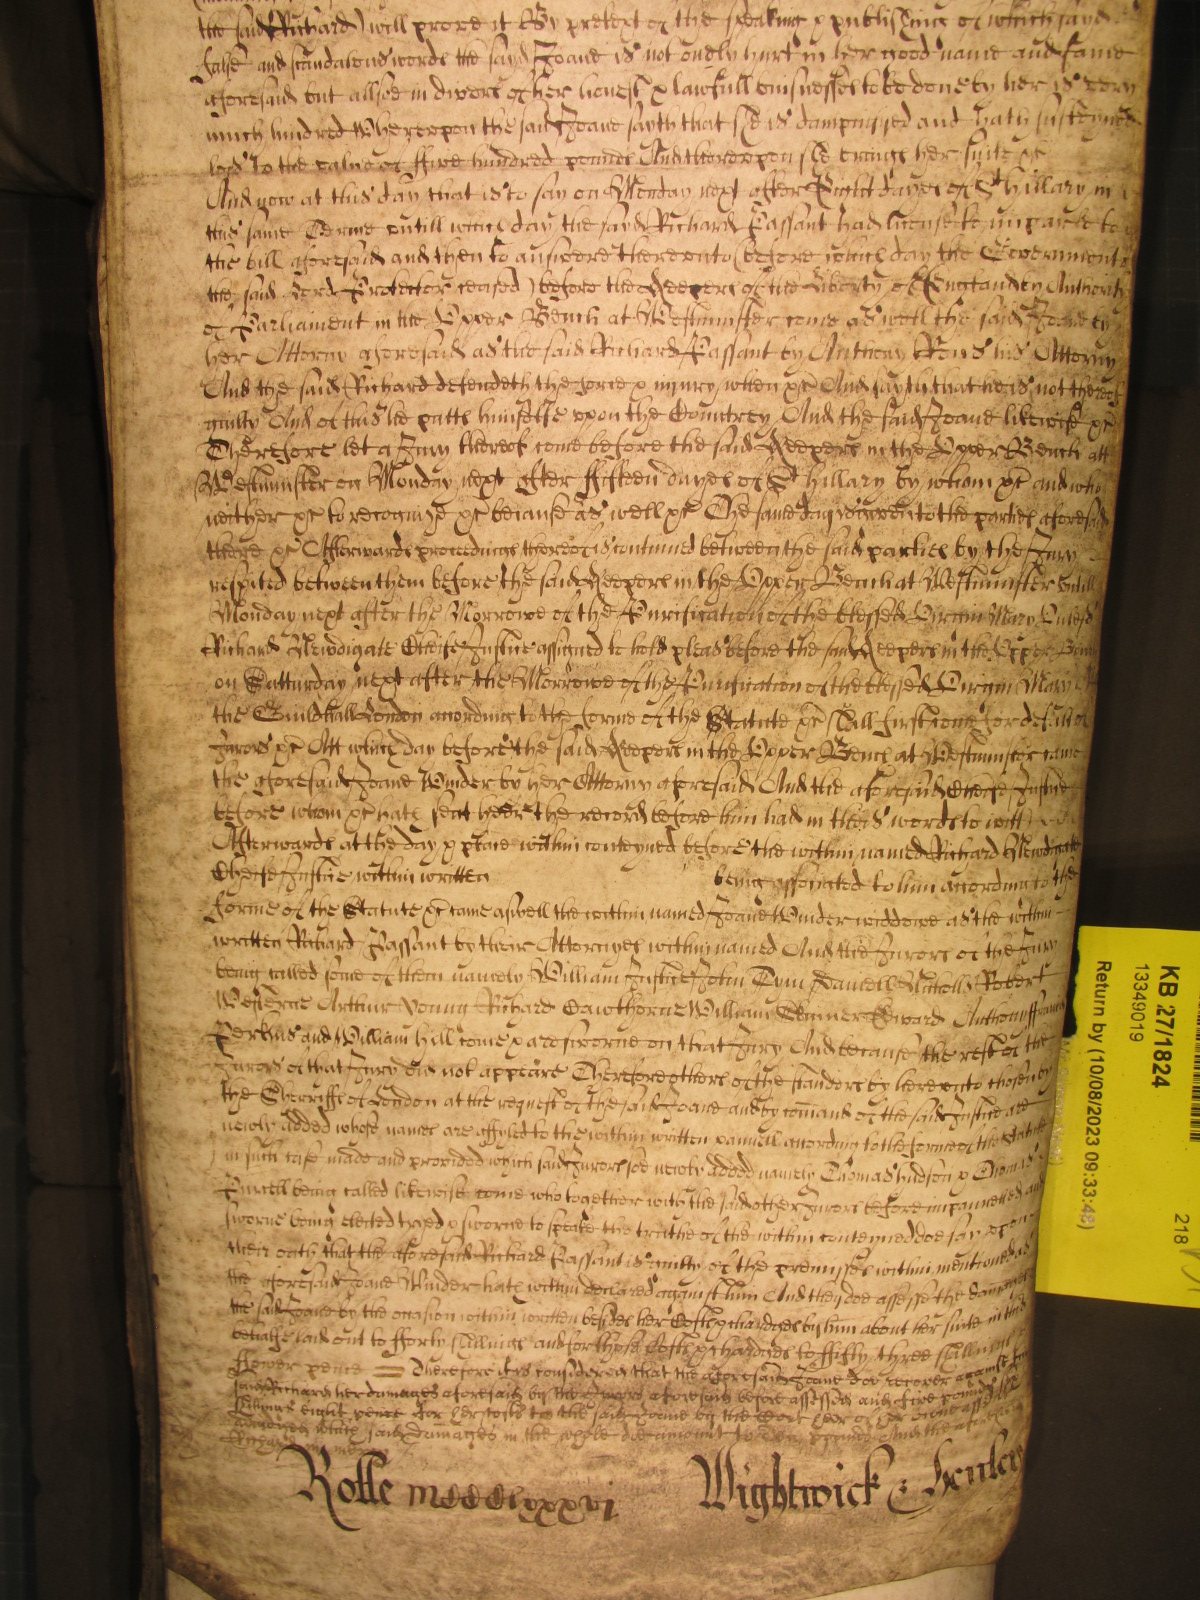 the said Richard) will prove it By pretext of the speaking & publishing of which sayd
false and scandalous words the sayd Joane is not onely hurt in her good name and fame
aforesaid but allsoe in divers other honest & lawfull buisnesses to be done by her is very
much hindred Whereupon the said Joane sayth that she is dampnified and hath susteyned
losse to the value of ffive hundred pounds And thereupon she brings her suite &c
And now at this day that is to say on Monday next after Eight dayes of St Hillary in
this same Terme untill which day the sayd Richard Passant had license to imparle to
the bill aforesaid and then to answere thereunto (before which day the Government of
the said Lord Protector ceased) before the Keepers of the Liberty of England by Authority
of Parliament in the Upper Bench at Westminster come as well the said Joane by
her Attorny aforesaid as the said Richard Passant by Anthony his Attorny
And the said Richard defendeth the force & injury when &c And sayth that he is not thereof
guilty And of this he putts himselfe upon the Countrey And the said Joane likewise &c
Therefore let a Jury thereof come before the said Keepers in the Upper Bench att
Westminster on Monday next after ffifteen dayes of St Hillary by whom &c and who
neither &c to recognize &c because as well &c The same day is given to the parties aforesaid
there &c Afterwards proceedings thereof is continued betweene the said parties by the Jury
respited between them before the said Keepers in the Upper Bench at Westminster untill
Monday next after the Morrowe of the Purification of the blessed Virgin Mary Unless
Richard Newdigate Cheife Justice assigned to hold pleas before the said Keepers in the Upper Bench
on Satturday next after the Morrowe of the Purification of the blessed Virgin Mary
the Guildhall London according to the forme of the Statute &c shall first come for default of
Jurors &c Att which day before the said Keepers in the Upper Bench at Westminster came
the aforesaid Joane Winder by her Attorny aforesaid And the aforesaid Cheife Justice
before whom &c hath sent heer the record before him had in theis words to witt
Afterwards at the day & place within conteyned before the within named Richard Newdigate
Cheife Justice within written being associated to him according to the
forme of the Statute &c came aswell the within named Joane Winder widdowe as the within
written Richard Passant by their Attornyes within named And the Jurors of the Jury
being called some of them namely William Justice John Daniell Nicholls Robert
Arthur Young Richard Cawthorne William Edward Anthony ffrancis
Perkins and William Hill come & are sworne on that Jury And because the rest of the
Jurors of that Jury did not appeare Therefore others of the standers by hereunto chosen by
the Sherriffs of London at the request of the said Joane and by comand of the said Justice are
newly added whose names are affyled to the within written pannell according to the forme of the Statute
in such case made and provided which said Jurors soe newly added namely Thomas Hudson & Thomas
Purcell being called likewise come who together with the said other Jurors before impannelled and
sworne being elected tryed & sworne to speake the truthe of the within conteyned doe say upon
their oath that the aforesaid Richard Passant is guilty of the premisses within mentioned as
the aforesaid Joane Winder hath within declared against him And they doe assesse the damages
the said Joane by the occasion within written besides her Costs & chardges by him about her suite in this
behalfe laid out to fforty shillings and for those Costs & chardges to ffifty three shillings
ffower pence Therefore it is considered that the aforesaid Joane doe recover against the
said Richard her damages aforesaid by the Jurors aforesaid before assessed and five pounds six
shillings eight pence for her costs to the said Joane by the Court heer of her owne assent
which said damages in the whole doe amount to Tenn pounds And the aforesaid
Richard in mercy
Rolle mccclxxxvi Wightwick &
KB 27/1824
13349019
Return by (10/08/2023 09:33:48)
218